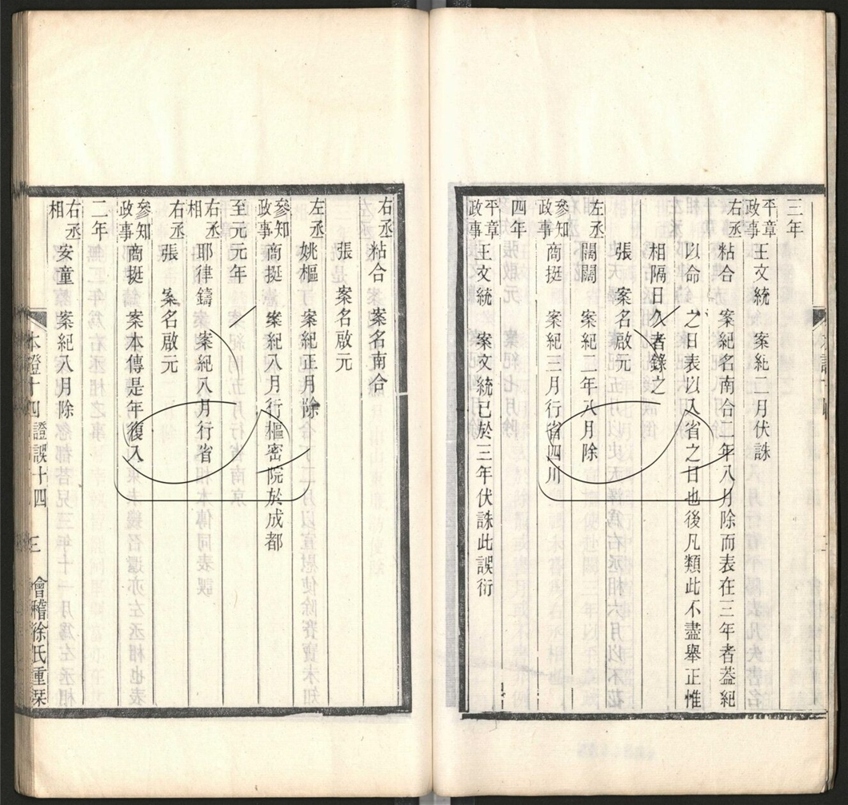 三年
平章政事 王文統 案紀二月伏誅
右丞 粘合 案紀名南合二年八月除而表在三年者葢紀
以命 之日表以入省之日也後凡類此不盡舉正惟
相隔日久者錄之
張 案名啟元
左丞 闊闊 案紀二年八月除
參知政事 商挺 案紀三月行省四川
四年
平章政事 王文統 案文統已於三年伏誅此誤衍
右丞 粘合 案名南合
張 案名啟元
左丞 姚樞 案紀正月除
參知政事 商挺 案紀八月行樞密院於成都
至元元年
右丞相 耶律鑄 案紀八月行省
右丞 張 案名啟元
參知政事 商挺 案本傳是年復入
二年
右丞相 安童 案紀八月除
本證十四 證誤十四 三 會稽徐氏重栞